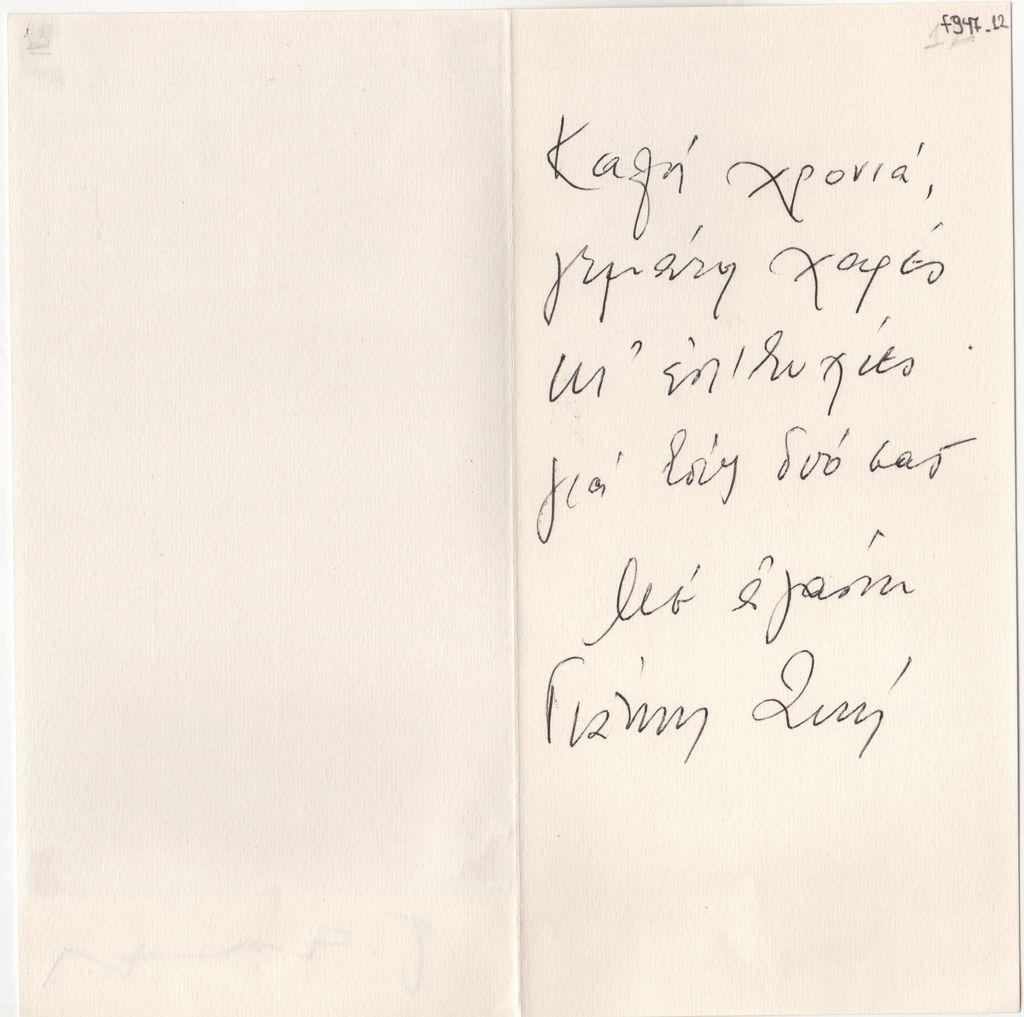 f947_12
Καλή χρονιά,
γεμάτη χαρές
κι' ἐπιτυχίες
γιά τούς δυό σας
Μέ ἀγάπη
Γιάννης